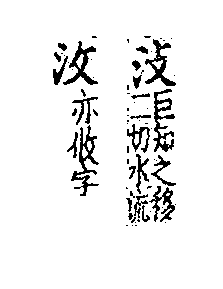 汥
巨知之移
二切水流
亦攸字